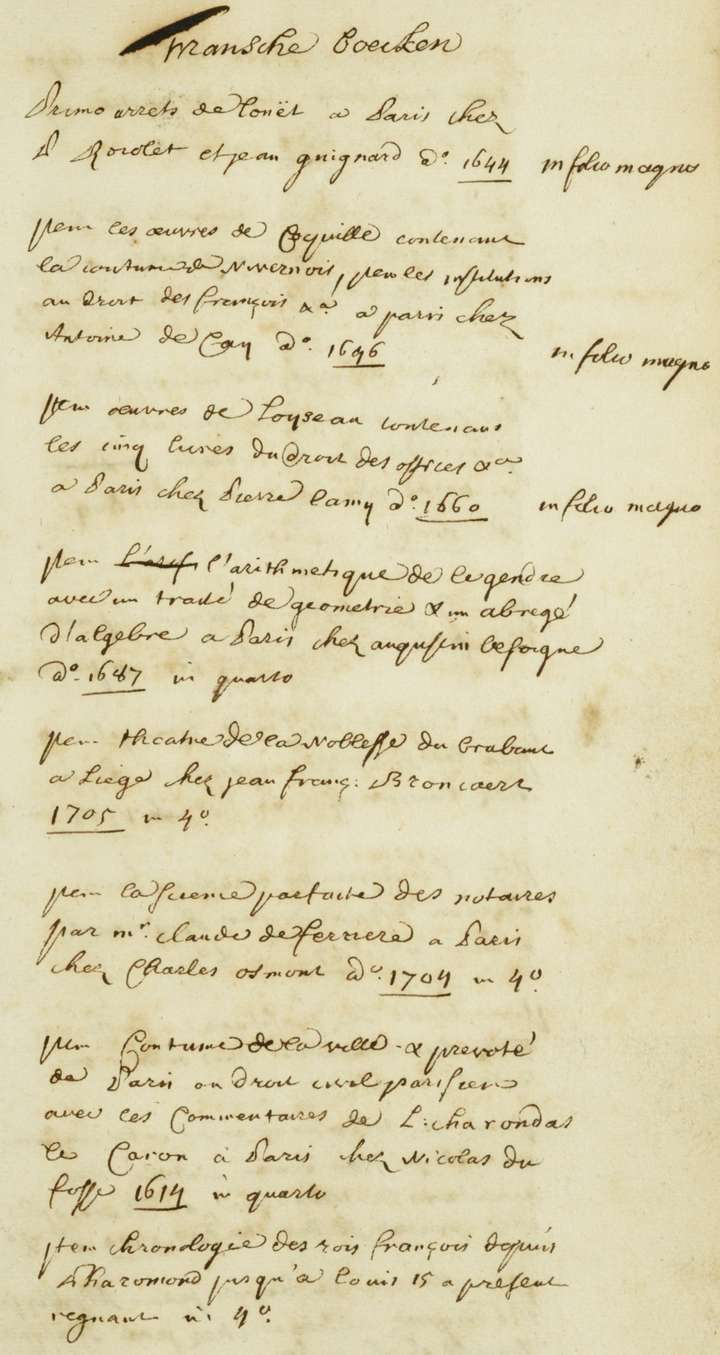 Fransche boecken
Primo arrets de louët a Paris chez
P Rocolet et jean guignard do. 1644 in folio magno
jtem les œuvres de Coquille contenant
la coutume de Nivernois, jtem les institutions
au droit des françois &a a paris chez
Antoine de Cay do. 1646 in folio magno
jtem œuvres de Loyseau contenans
les cinq livres du Droit des offices &a
a Paris chez Pierre lamy do. 1660 in folio magno
jtem l'arithmetique de le gendre
avec un traité de geometrie & un abregé
d'algebre a Paris chez augustin besoigne
do. 1687 in quarto
jtem theatre de la Noblesse du brabant
a Liege chez jean franç: Broncaert
1705 in 4o.
jtem la science parfaite des notaires
par mr. claude de ferriere a Paris
chez Charles osmont do. 1704 in 4o.
jtem Coutume de la ville & prevoté
de Paris ou droit civil parisien
avec les Commentaires de L: charondas
le Caron à Paris chez Nicolas du
fosse 1614 in quarto
jtem chronologie des rois françois depuis
Pharamond jusqu'a louis 15 a present
regnant in 4o.